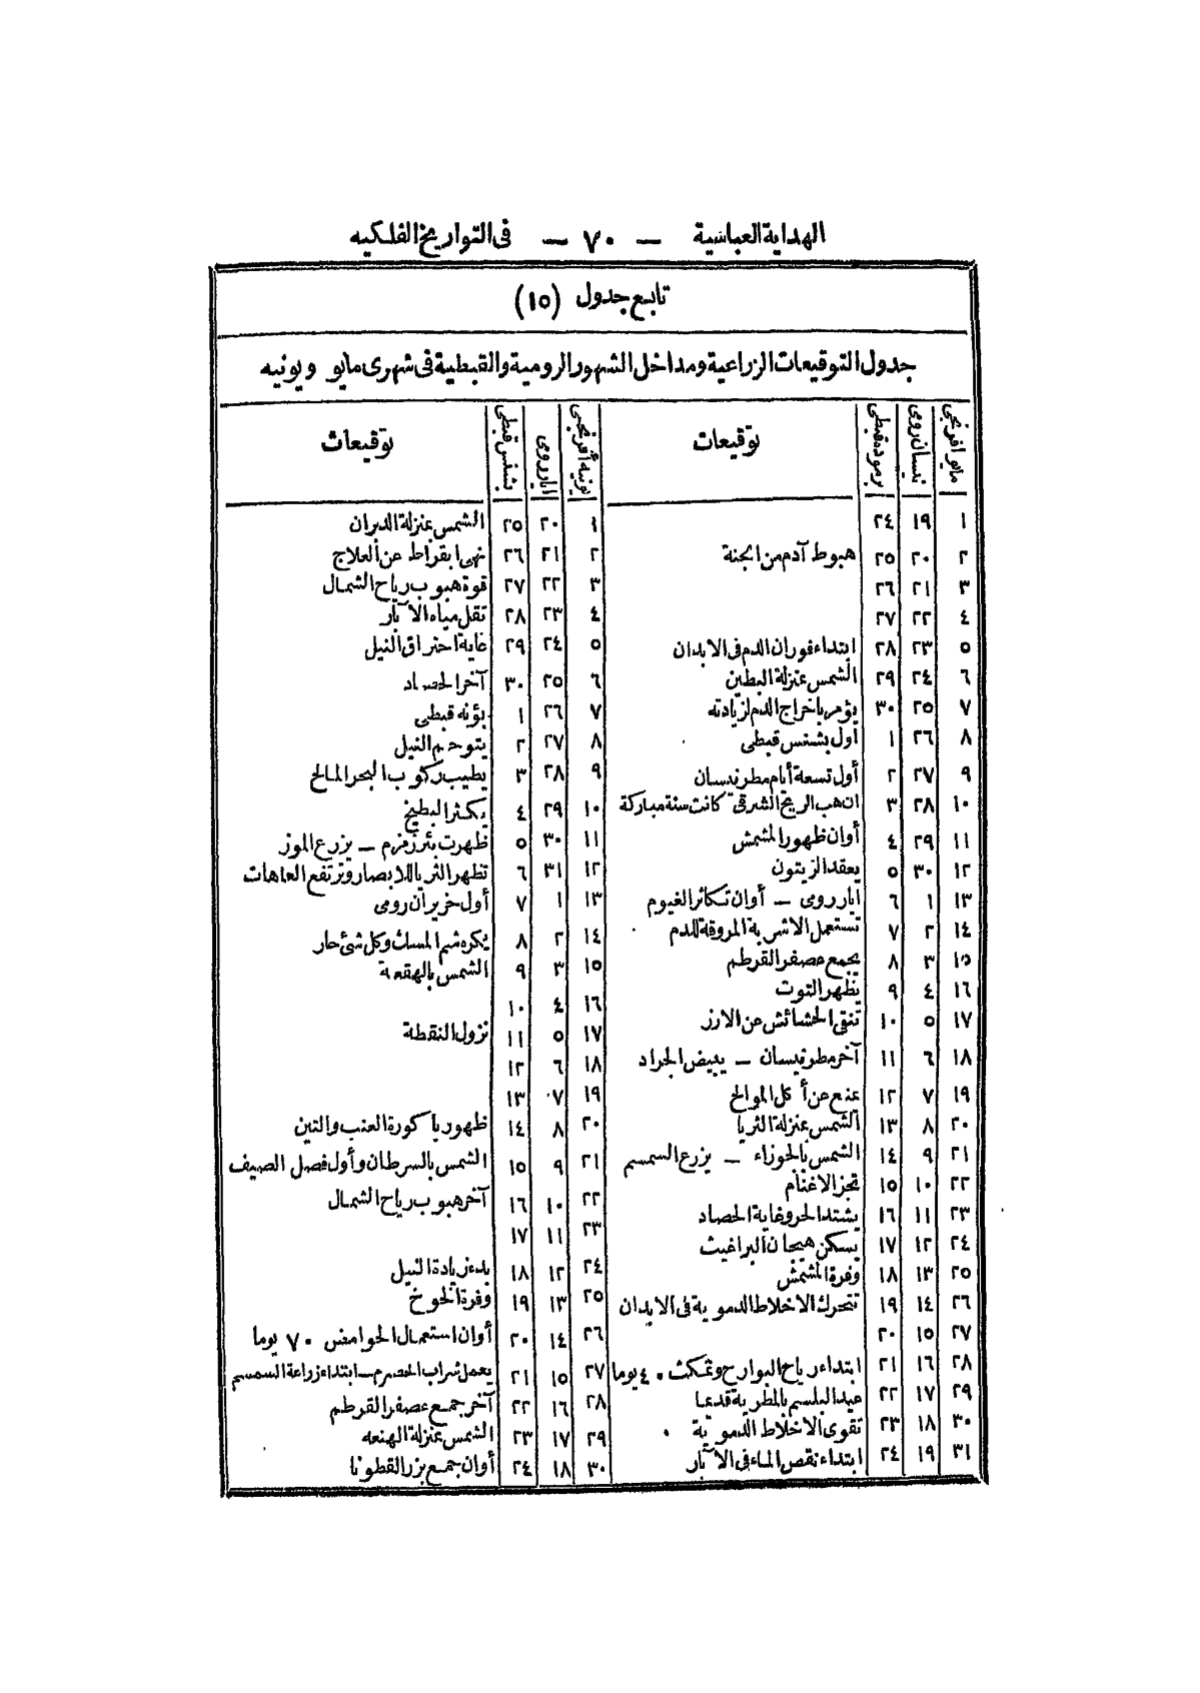 الهداية العباسية — ٧٠ — فى التواريخ الفلكيه
تابع جدول (١٥)
جدول التوقيعات الزراعية ومداخل الشهور الرومية والقبطية فى شهرى مايو ويونيه
مايو افرنجى نيسان رومى برموده قبطى توقيعات يونيه افرنجى ايار رومى بشنس قبطى توقيعات
١ ١٩ ٢٤ ١ ٢٠ ٢٥ الشمس بمنزلة الدبران
٢ ٢٠ ٢٥ هبوط آدم من الجنة ٢ ٢١ ٢٦ نهى ابقراط عن العلاج
٣ ٢١ ٢٦ ٣ ٢٢ ٢٧ قوة هبوب رياح الشمال
٤ ٢٢ ٢٧ ٤ ٢٣ ٢٨ تقل مياه الآبار
٥ ٢٣ ٢٨ ابتداء فوران الدم فى الابدان ٥ ٢٤ ٢٩ غاية احتراق النيل
٦ ٢٤ ٢٩ الشمس بمنزلة البطين ٦ ٢٥ ٣٠ آخر الحصاد
٧ ٢٥ ٣٠ يؤمر باخراج الدم لزيادته ٧ ٢٦ ١ بؤنه قبطى
٨ ٢٦ ١ أول بشنس قبطى ٨ ٢٧ ٢ يتوحم النيل
٩ ٢٧ ٢ أول تسعة أيام مطر نيسان ٩ ٢٨ ٣ يطيب ركوب البحر المالح
١٠ ٢٨ ٣ ان هب الريح الشرقى كانت سنة مباركة ١٠ ٢٩ ٤ يكثر البطيخ
١١ ٢٩ ٤ أوان ظهور المشمش ١١ ٣٠ ٥ ظهرت بئر زمزم — يزرع الموز
١٢ ٣٠ ٥ يعقد الزيتون ١٢ ٣١ ٦ تظهر الثريا للابصار وترتفع العاهات
١٣ ١ ٦ ايار رومى — أوان تكاثر الغيوم ١٣ ١ ٧ أول حزيران رومى
١٤ ٢ ٧ تستعمل الاشربة المروقة للدم ١٤ ٢ ٨ يكره شم المسك وكل شئ حار
١٥ ٣ ٨ يجمع عصفر القرطم ١٥ ٣ ٩ الشمس بالهقعة
١٦ ٤ ٩ يظهر التوت ١٦ ٤ ١٠
١٧ ٥ ١٠ تنقى الحشائش من الارز ١٧ ٥ ١١ نزول النقطة
١٨ ٦ ١١ آخر مطر نيسان — يبيض الجراد ١٨ ٦ ١٢
١٩ ٧ ١٢ يمنع عن أكل الموالح ١٩ ٧ ١٣
٢٠ ٨ ١٣ الشمس بمنزلة الثريا ٢٠ ٨ ١٤ ظهور باكورة العنب والتين
٢١ ٩ ١٤ الشمس بالجوزاء — يزرع السمسم ٢١ ٩ ١٥ الشمس بالسرطان وأول فصل الصيف
٢٢ ١٠ ١٥ تجز الاغنام ٢٢ ١٠ ١٦ آخر هبوب رياح الشمال
٢٣ ١١ ١٦ يشتد الحر وغاية الحصاد ٢٣ ١١ ١٧
٢٤ ١٢ ١٧ يسكن هيجان البراغيث ٢٤ ١٢ ١٨ بدء زيادة النيل
٢٥ ١٣ ١٨ وفرة المشمش ٢٥ ١٣ ١٩ وفرة الخوخ
٢٦ ١٤ ١٩ تتحرك الاخلاط الدموية فى الابدان ٢٦ ١٤ ٢٠ أوان استعمال الحوامض ٧٠ يوما
٢٧ ١٥ ٢٠ ٢٧ ١٥ ٢١ يعمل شراب الحصرم — ابتداء زراعة السمسم
٢٨ ١٦ ٢١ ابتداء رياح البوارح وتمكث ٤٠ يوما ٢٨ ١٦ ٢٢ آخر جمع عصفر القرطم
٢٩ ١٧ ٢٢ عيد البلسم بالمطرية قديما ٢٩ ١٧ ٢٣ الشمس بمنزلة الهنعه
٣٠ ١٨ ٢٣ تقوى الاخلاط الدموية ٣٠ ١٨ ٢٤ أوان جمع بزر القطونا
٣١ ١٩ ٢٤ ابتداء نقص الماء فى الآبار